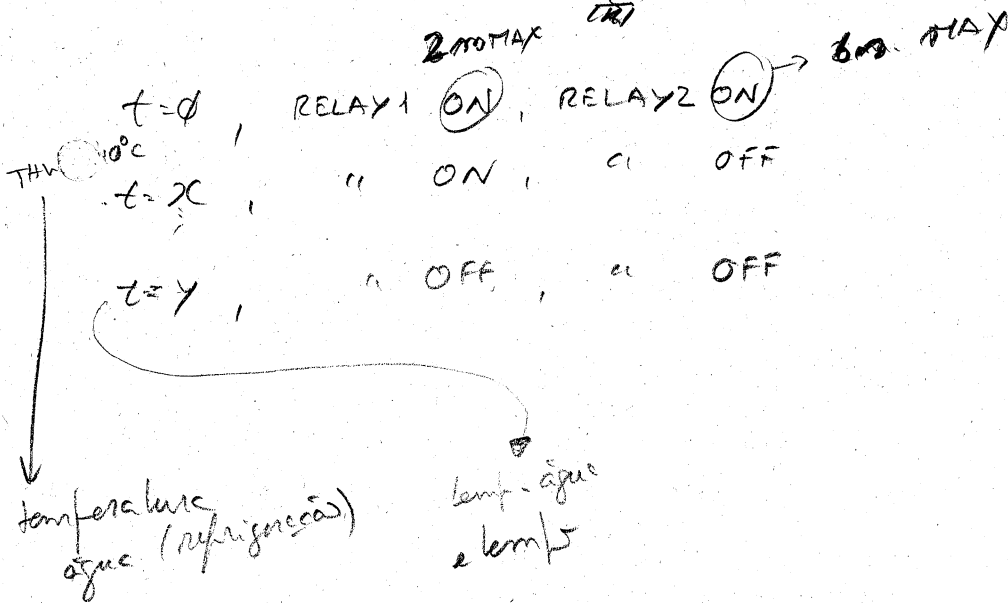 MAX MAX
t=ø , RELAY1 ON , RELAY2 ON
THW 10°C
t=x , " ON , " OFF
t=y , " OFF , " OFF
temperatura
água (refrigeração)
temp. água
e tempo